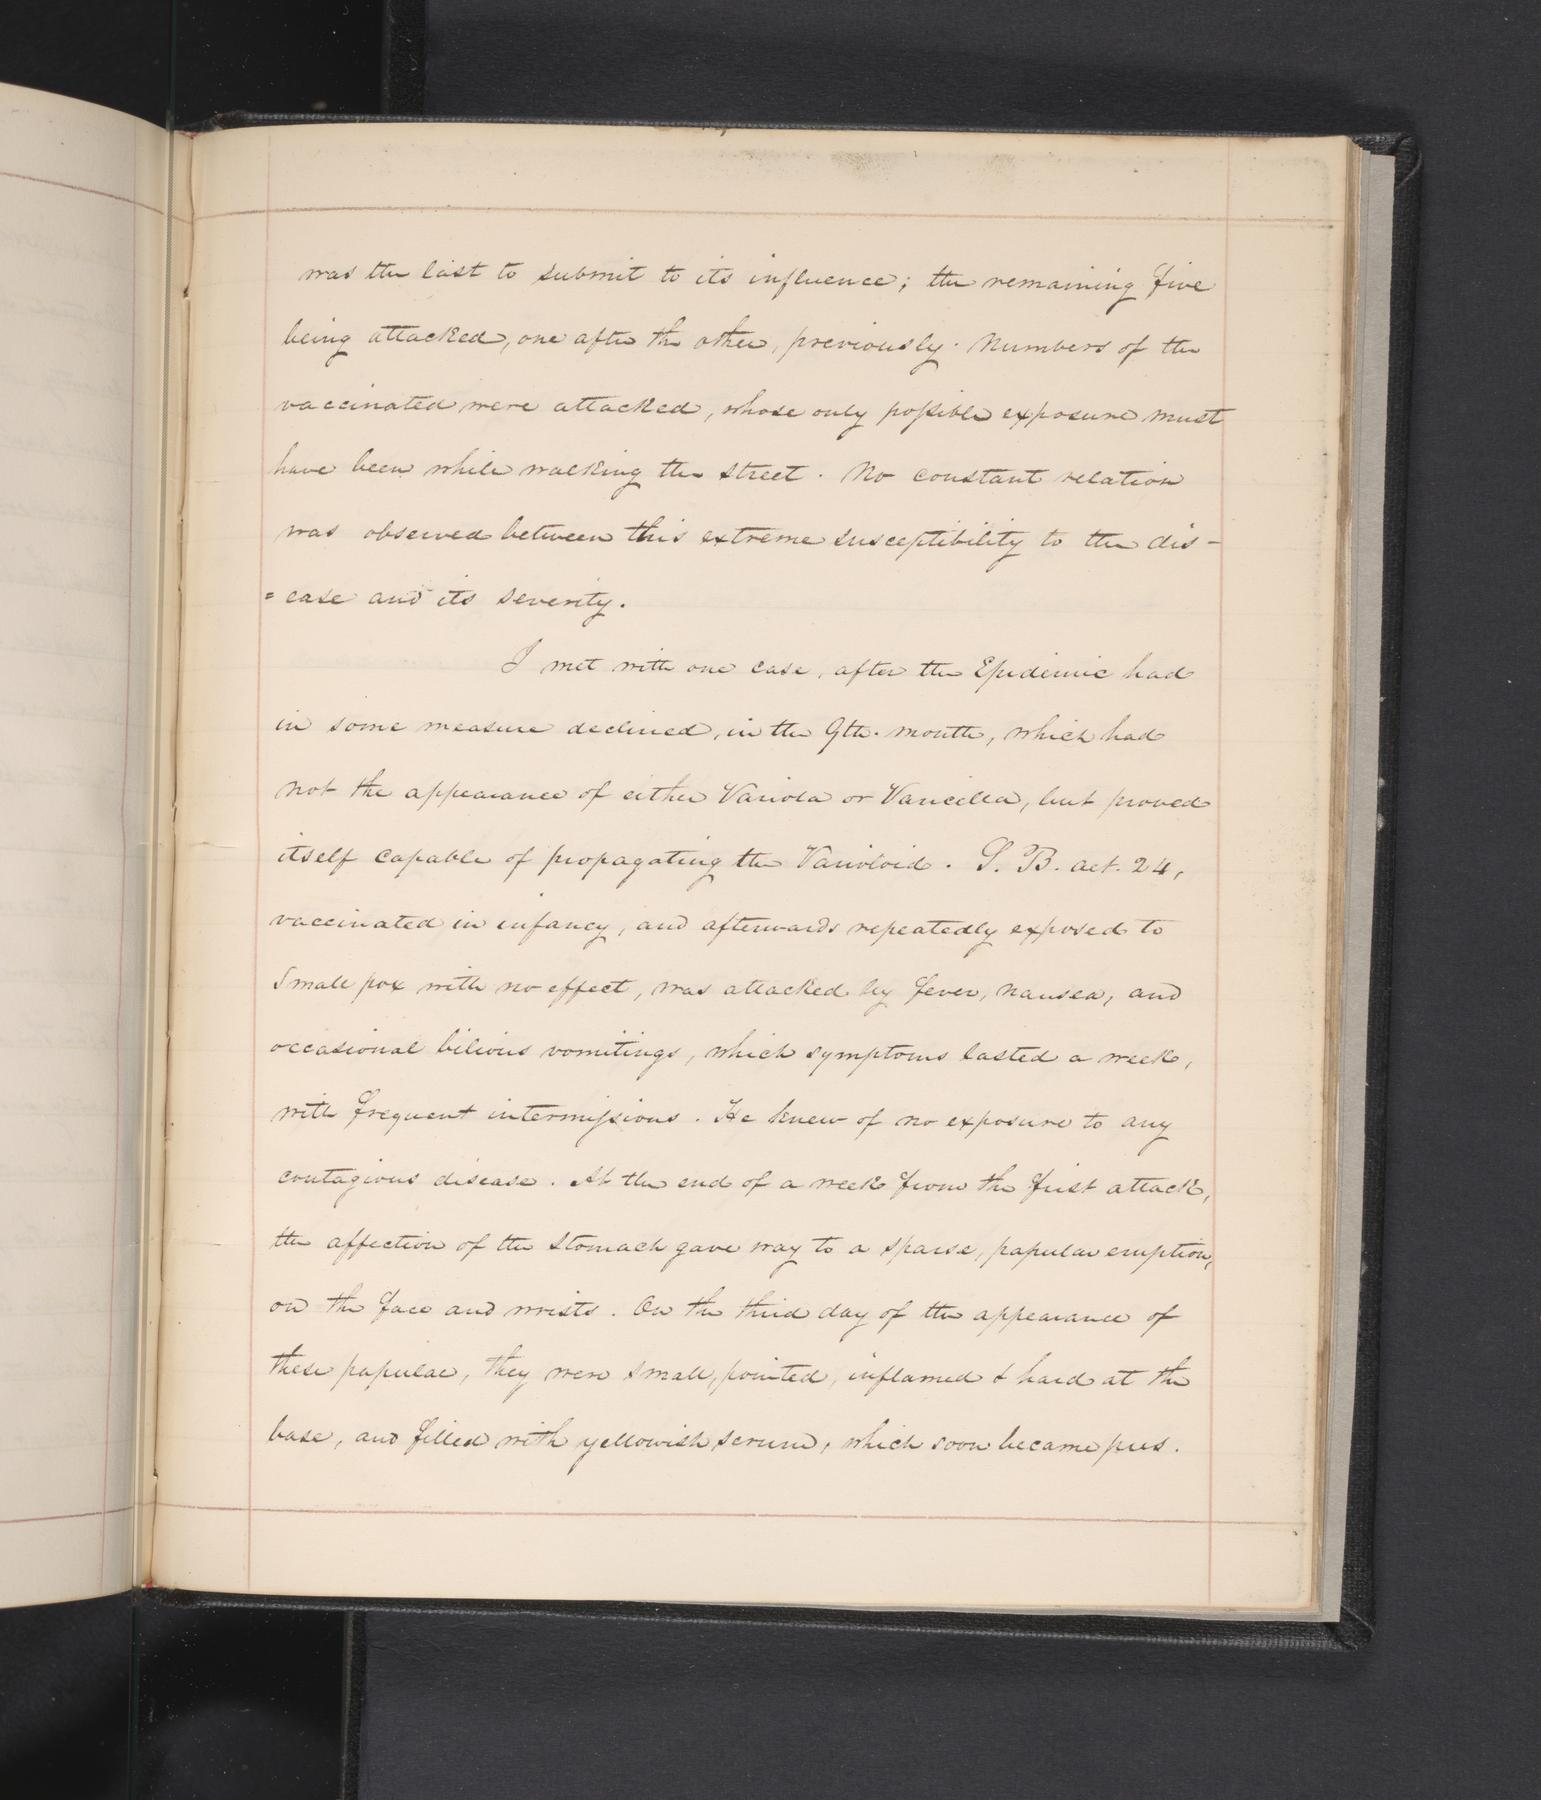 was the last to submit to its influence; the remaining five
being attacked, one after the other, previously. Numbers of the
vaccinated were attacked, whose only possible exposure must
have been while walking the street. No constant relation
was observed between this extreme susceptibility to the dis-
=ease and its severity.
I met with one case, after the Epidemic had
in some measure declined, in the 9th. month, which had
not the appearance of either Variola or Varicella, but proved
itself capable of propagating the Varioloid. S. B. aet. 24,
vaccinated in infancy, and afterwards repeatedly exposed to
Small pox with no effect, was attacked by fever, nausea, and
occasional bilious vomitings, which symptoms lasted a week,
with frequent intermissions. He knew of no exposure to any
contagious disease. At the end of a week from the first attack,
the affection of the stomach gave way to a sparse, papular eruption,
on the face and wrists. On the third day of the appearance of
these papulae, they were small, pointed, inflamed & hard at the
base, and filled with yellowish serum, which soon became pus.